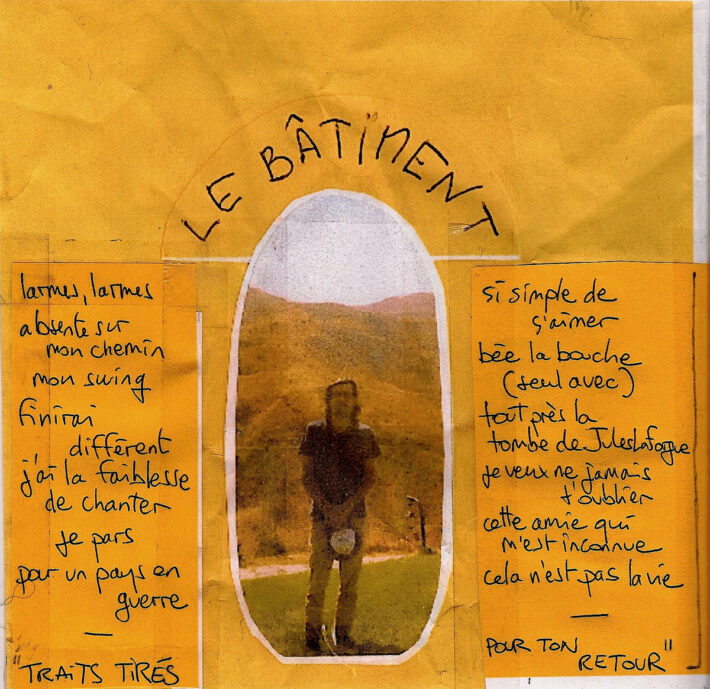 LE BÂTIMENT
larmes, larmes
absente sur
mon chemin
mon swing
finirai
différent
j'ai la faiblesse
de chanter
je pars
pour un pays en
guerre
—
"TRAITS TIRÉS
si simple de
s'aimer
bée la bouche
(seul avec)
tout près la
tombe de Jules Laforgue
je veux ne jamais
t'oublier
cette amie qui
m'est inconnue
cela n'est pas la vie
—
POUR TON
RETOUR"